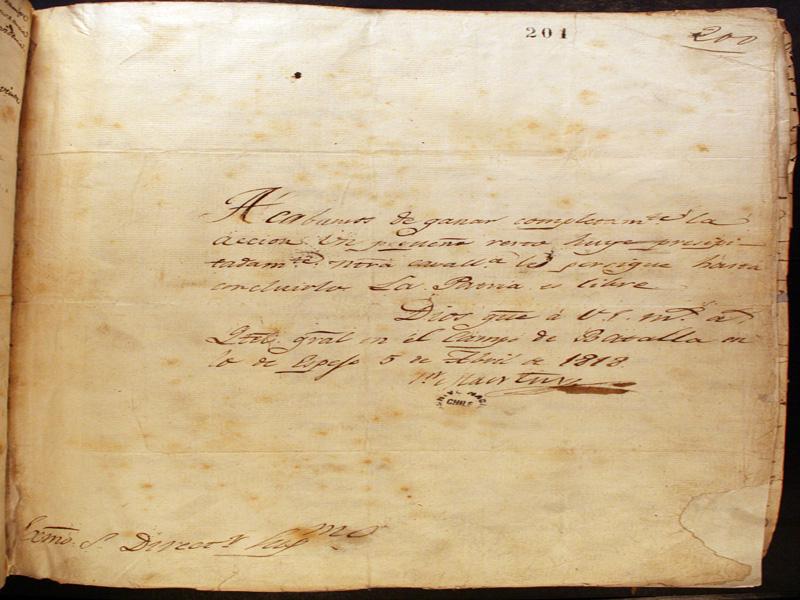 201
200
Acabamos de ganar completamte la
accion. Un pequeño resto huye presipi-
tadamte. Ntra cavalla lo persigue hasta
concluirlo. La Patria es libre
Dios gue á V.E. ms as
Qtel gral en el Campo de Batalla en
lo de Espejo 5 de Abril de 1818.
CHILE
Exmo. Sr Director Supmo